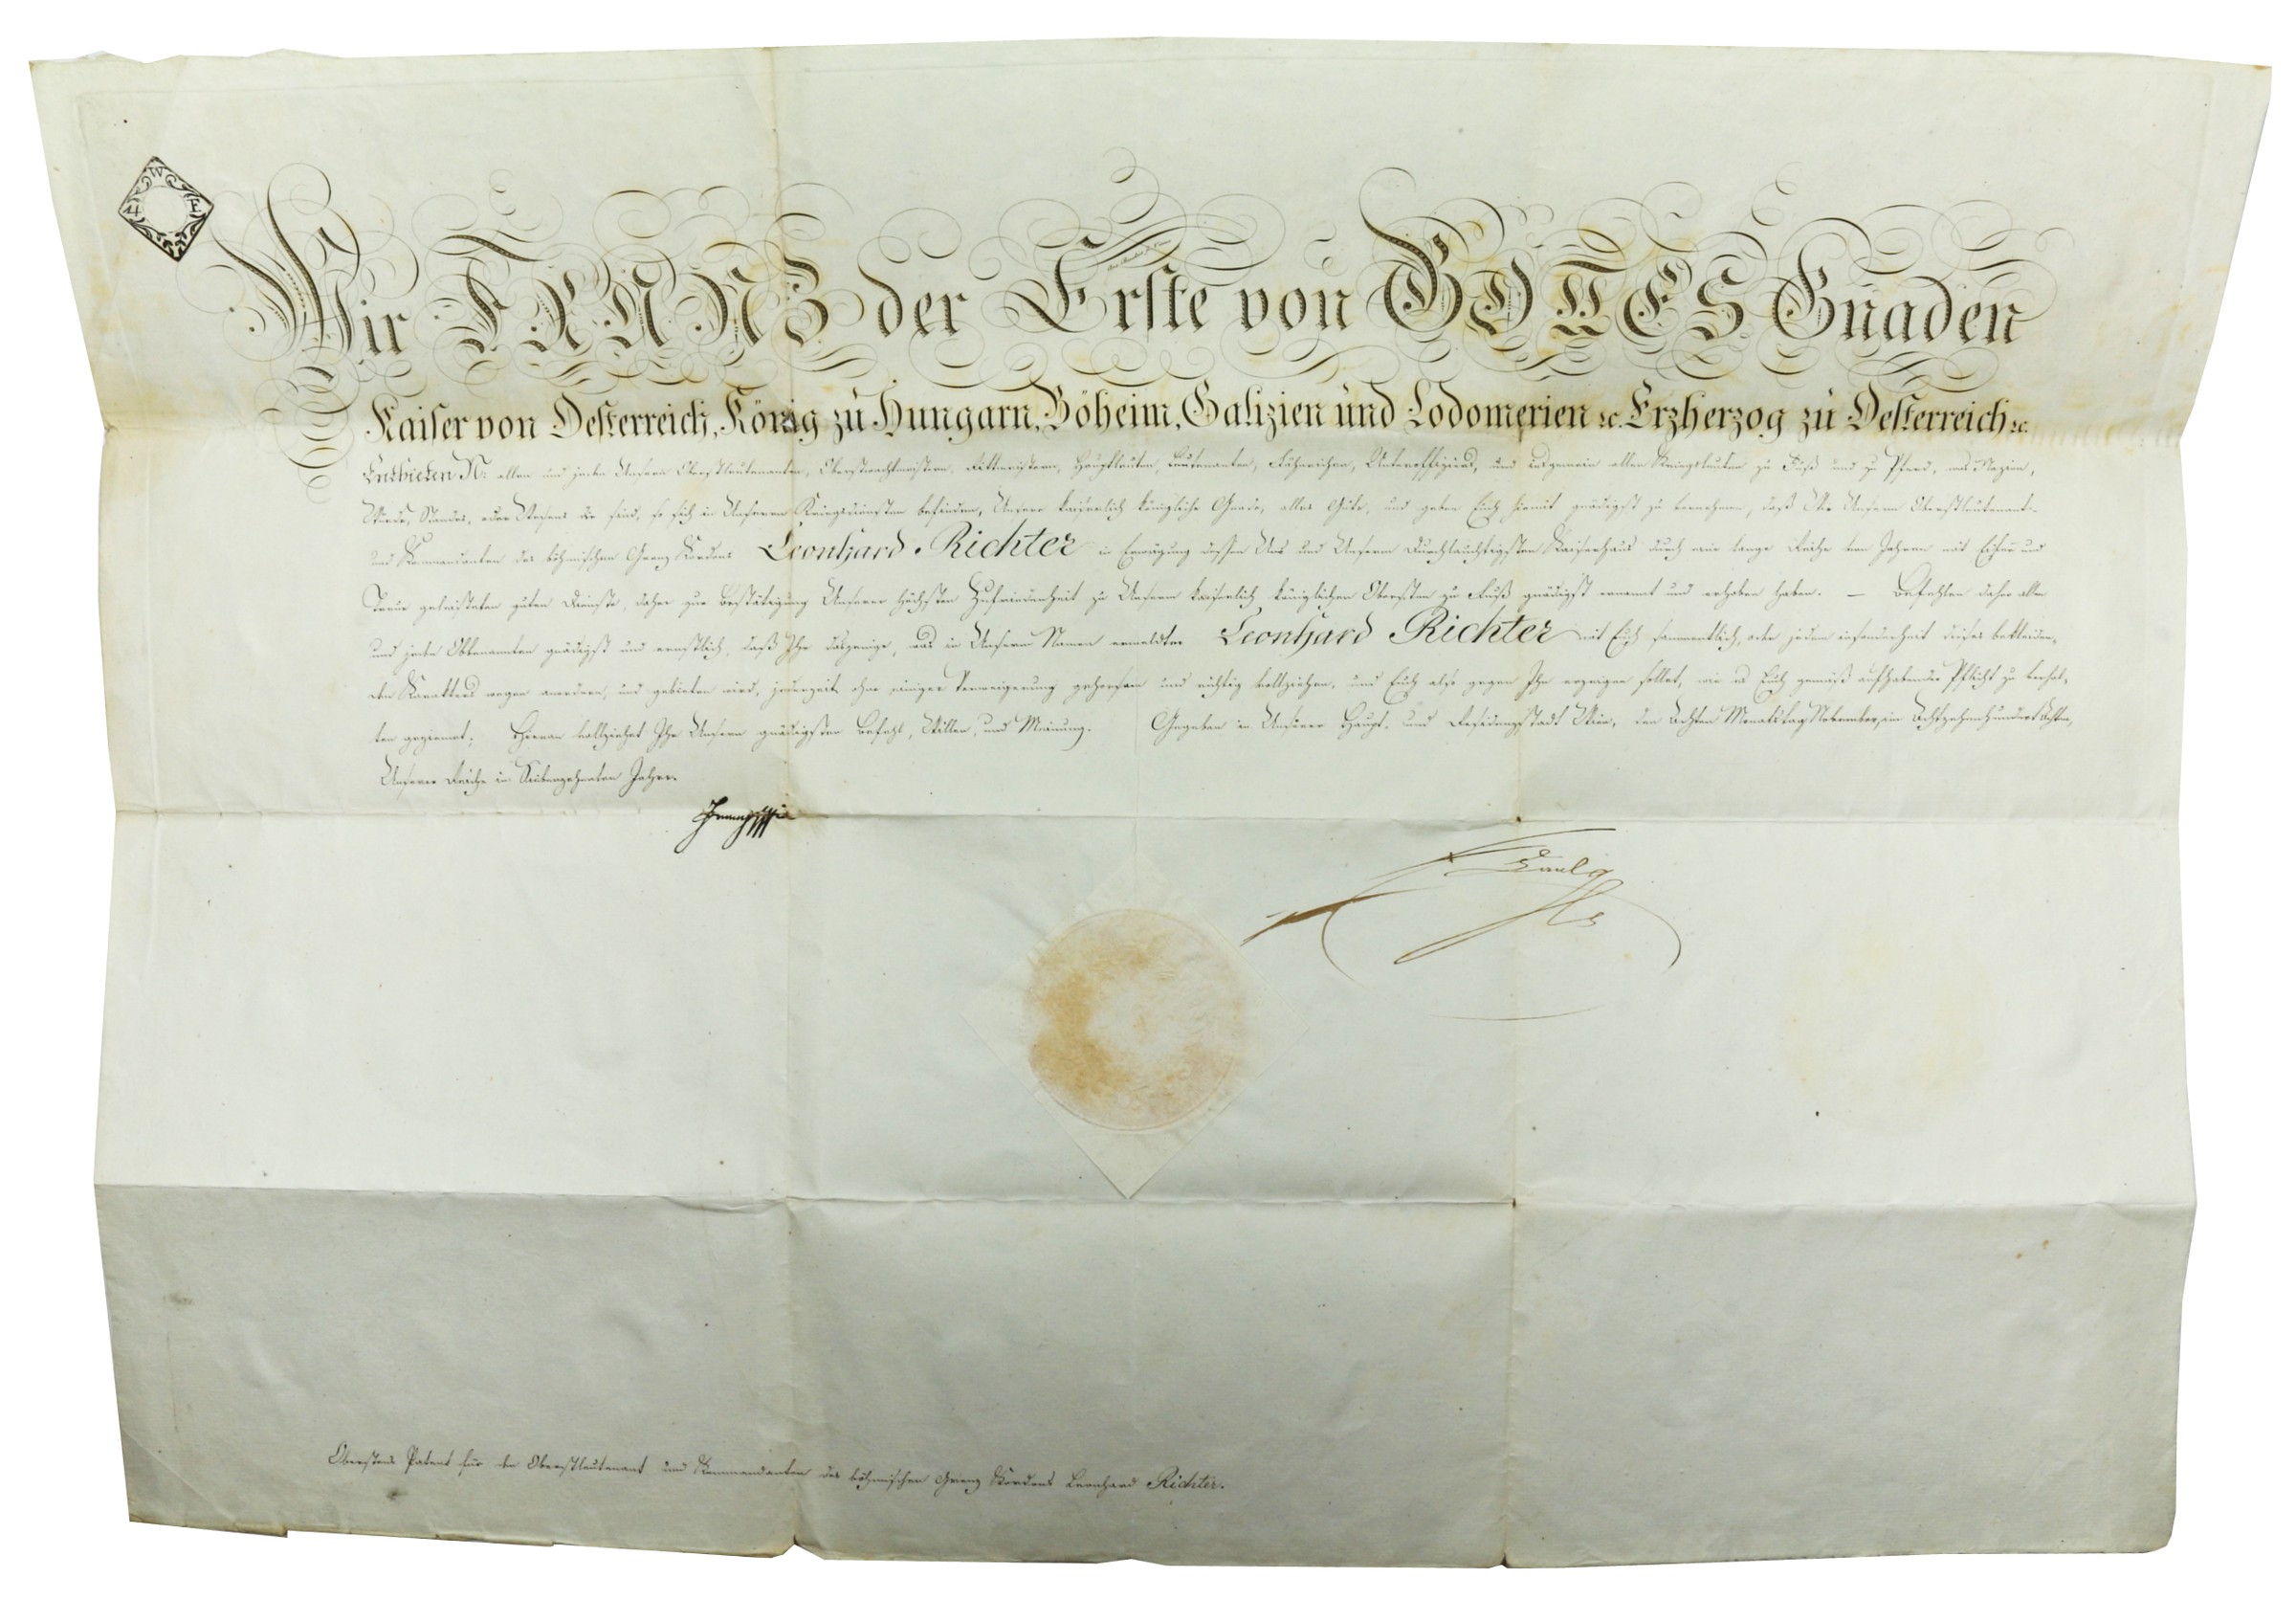 W
Wir FRANZ der Erste von GOTTES Gnaden
Kaiser von Oesterreich, König zu Hungarn, Böheim, Galizien und Lodomerien ꝛc. Erzherzog zu Oesterreich ꝛc.
Entbieten N: allen und jeden Unsern Oberstleutenanten, Oberstwachtmeistern, Rittmeistern, Hauptleuten, Leutenanten, Fähnrichen, Unteroffiziers, und insgemein allen Kriegsleuten zu Fuß und zu Pferd, was Nazion,
Würde, Standes, oder Wesens die sind, so sich in Unseren Kriegsdiensten befinden, Unsere kaiserlich königliche Gnade, alles Gute, und geben Euch hiemit gnädigst zu vernehmen, daß Wir Unsern Oberstleutenant
und Kommandanten des böhmischen Grenz Kordons Leonhard Richter in Erwägung dessen Uns und Unserm Durchlauchtigsten Kaiserhaus durch eine lange Reihe von Jahren mit Eifer und
Treue geleisteten guten Dienste, daher zur Bestätigung Unserer höchsten Zufriedenheit zu Unserm kaiserlich königlichen Obersten zu Fuß gnädigst ernannt und erhoben haben. — Befehlen daher allen
und jeden Obbenannten gnädigst und ernstlich, daß Ihr dasjenige, was in Unserm Namen ermeldter Leonhard Richter mit Euch sammentlich, oder jedem insonderheit dieses bekleiden-
den Karakters wegen anordnen, und gebieten wird, jederzeit ohne einiger Verweigerung gehorsam und richtig vollziehen, und Euch also gegen Ihn erzeigen sollet, wie es Euch gemäß aufhabender Pflicht zu verhal-
ten geziemet; Hieran vollziehet Ihr Unsern gnädigsten Befehl, Willen, und Meinung. Gegeben in Unserer Haupt- und Residenzstadt Wien, den Achten Monatstag November, im Achtzehenhundert Achten,
Unserer Reiche im Siebenzehenten Jahre.
Franz
Oberstens Patent für den Oberstleutenant und Kommandanten des böhmischen Grenz Kordons Leonhard Richter.